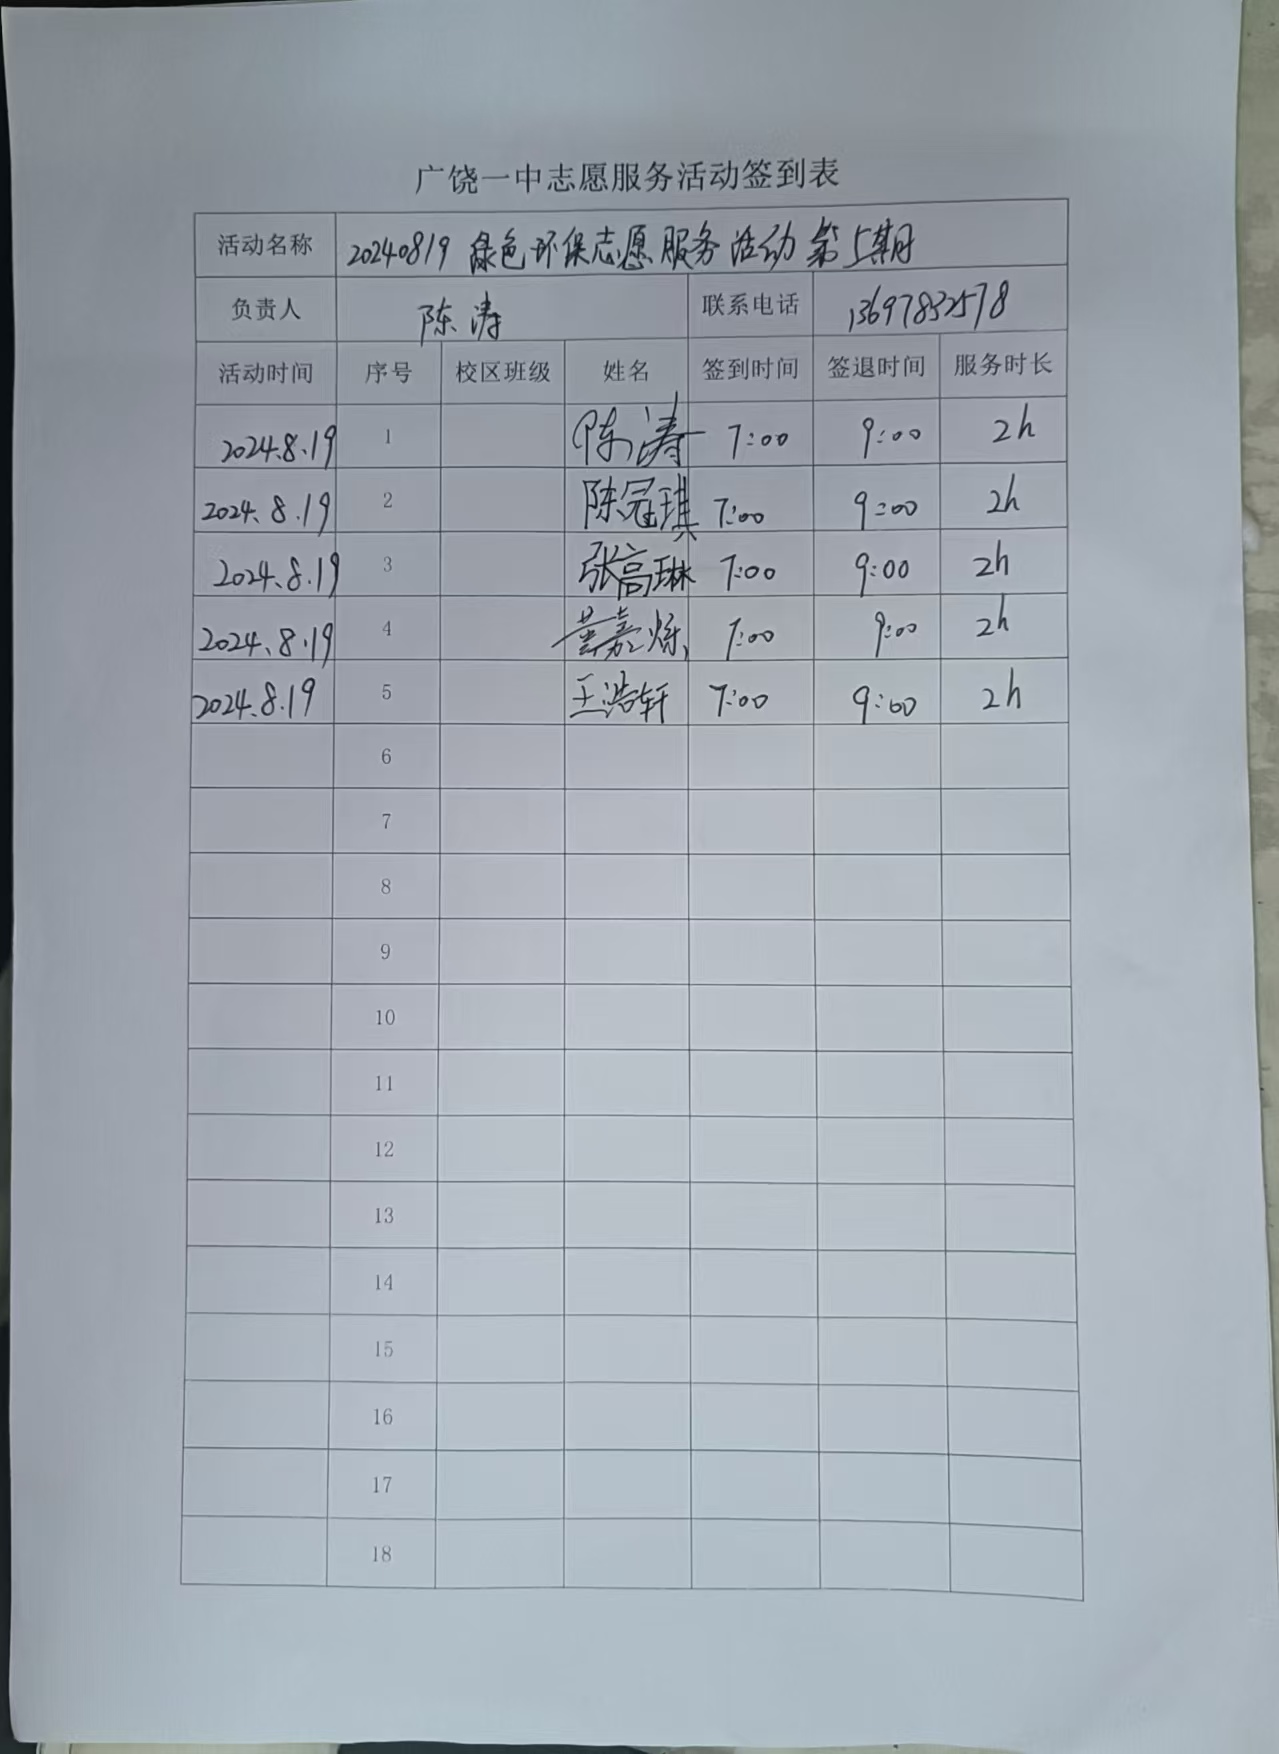 广饶一中志愿服务活动签到表
活动名称 20240819 绿色环保志愿服务活动第5期
负责人 陈涛 联系电话 13697832578
活动时间 序号 校区班级 姓名 签到时间 签退时间 服务时长
2024.8.19 1 陈涛 7:00 9:00 2h
2024.8.19 2 陈冠琪 7:00 9:00 2h
2024.8.19 3 张高琳 7:00 9:00 2h
2024.8.19 4 7:00 9:00 2h
2024.8.19 5 王浩轩 7:00 9:00 2h
6
7
8
9
10
11
12
13
14
15
16
17
18